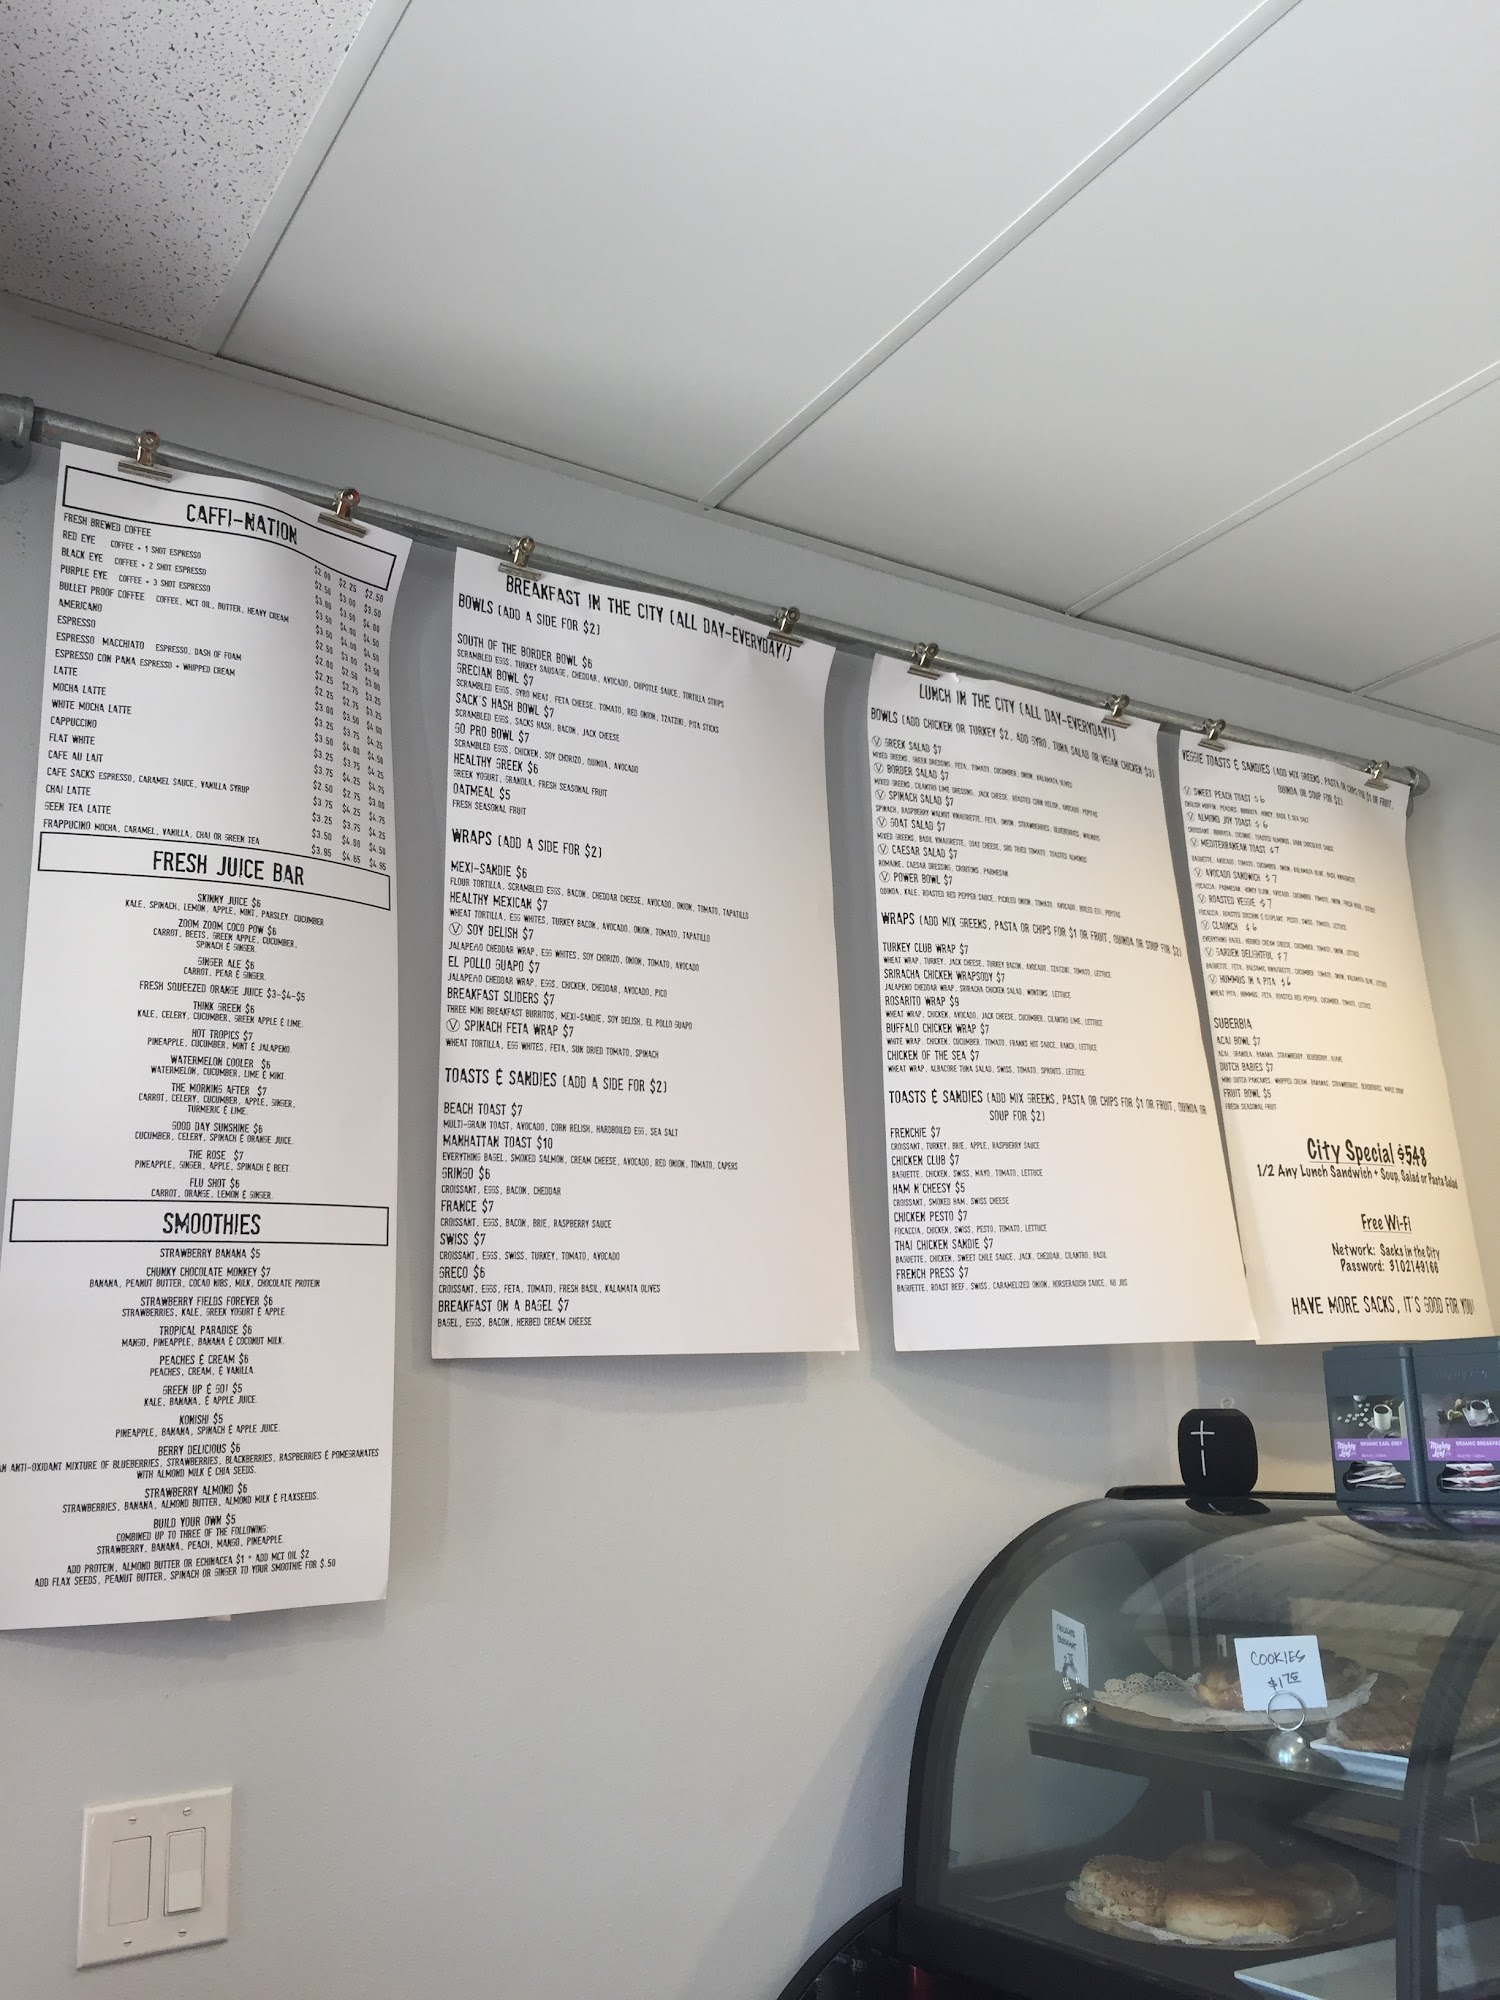 CAFFI-NATION
FRESH BREWED COFFEE $2.00 $2.25 $2.50
RED EYE COFFEE + 1 SHOT ESPRESSO $2.50 $3.00 $3.50
BLACK EYE COFFEE + 2 SHOT ESPRESSO $3.00 $3.50 $4.00
PURPLE EYE COFFEE + 3 SHOT ESPRESSO $3.50 $4.00 $4.50
BULLET PROOF COFFEE COFFEE, MCT OIL, BUTTER, HEAVY CREAM $3.50 $4.00 $4.50
AMERICANO $2.50 $3.00 $3.50
ESPRESSO $2.00 $2.50 $3.00
ESPRESSO MACCHIATO ESPRESSO, DASH OF FOAM $2.25 $2.75 $3.25
ESPRESSO CON PANA ESPRESSO + WHIPPED CREAM $2.25 $2.75 $3.25
LATTE $3.00 $3.50 $4.00
MOCHA LATTE $3.25 $3.75 $4.25
WHITE MOCHA LATTE $3.50 $4.00 $4.50
CAPPUCCINO $3.25 $3.75 $4.25
FLAT WHITE $3.75 $4.25 $4.75
CAFE AU LAIT $2.50 $2.75 $3.00
CAFE SACKS ESPRESSO, CARAMEL SAUCE, VANILLA SYRUP $3.75 $4.25 $4.75
CHAI LATTE $3.25 $3.75 $4.25
GEEN TEA LATTE $3.50 $4.00 $4.50
FRAPPUCINO MOCHA, CARAMEL, VANILLA, CHAI OR GREEN TEA $3.95 $4.65 $4.95
FRESH JUICE BAR
SKINNY JUICE $6
KALE, SPINACH, LEMON, APPLE, MINT, PARSLEY, CUCUMBER
ZOOM ZOOM COCO POW $6
CARROT, BEETS, GREEN APPLE, CUCUMBER,
SPINACH & GINGER.
GINGER ALE $6
CARROT, PEAR & GINGER.
FRESH SQUEEZED ORANGE JUICE $3-$4-$5
THINK GREEN $6
KALE, CELERY, CUCUMBER, GREEN APPLE & LIME.
HOT TROPICS $7
PINEAPPLE, CUCUMBER, MINT & JALAPENO.
WATERMELON COOLER $6
WATERMELON, CUCUMBER, LIME & MINT.
THE MORNING AFTER $7
CARROT, CELERY, CUCUMBER, APPLE, GINGER,
TURMERIC & LIME.
GOOD DAY SUNSHINE $6
CUCUMBER, CELERY, SPINACH & ORANGE JUICE.
THE ROSE $7
PINEAPPLE, GINGER, APPLE, SPINACH & BEET.
FLU SHOT $6
CARROT, ORANGE, LEMON & GINGER.
SMOOTHIES
STRAWBERRY BANANA $5
CHUNKY CHOCOLATE MONKEY $7
BANANA, PEANUT BUTTER, COCAO NIBS, MILK, CHOCOLATE PROTEIN
STRAWBERRY FIELDS FOREVER $6
STRAWBERRIES, KALE, GREEK YOGURT & APPLE.
TROPICAL PARADISE $6
MANGO, PINEAPPLE, BANANA & COCONUT MILK.
PEACHES & CREAM $6
PEACHES, CREAM, & VANILLA
GREEN UP & GO! $5
KALE, BANANA, & APPLE JUICE.
KONISHI $5
PINEAPPLE, BANANA, SPINACH & APPLE JUICE.
BERRY DELICIOUS $6
AN ANTI-OXIDANT MIXTURE OF BLUEBERRIES, STRAWBERRIES, BLACKBERRIES, RASPBERRIES & POMEGRANATES
WITH ALMOND MILK & CHIA SEEDS.
STRAWBERRY ALMOND $6
STRAWBERRIES, BANANA, ALMOND BUTTER, ALMOND MILK & FLAXSEEDS.
BUILD YOUR OWN $5
COMBINED UP TO THREE OF THE FOLLOWING:
STRAWBERRY, BANANA, PEACH, MANGO, PINEAPPLE
ADD PROTEIN, ALMOND BUTTER OR ECHINACEA $1 * ADD MCT OIL $2
ADD FLAX SEEDS, PEANUT BUTTER, SPINACH OR GINGER TO YOUR SMOOTHIE FOR $.50
BREAKFAST IN THE CITY (ALL DAY-EVERYDAY!)
BOWLS (ADD A SIDE FOR $2)
SOUTH OF THE BORDER BOWL $6
SCRAMBLED EGGS, TURKEY SAUSAGE, CHEDDAR, AVOCADO, CHIPOTLE SAUCE, TORTILLA STRIPS
GRECIAN BOWL $7
SCRAMBLED EGGS, GYRO MEAT, FETA CHEESE, TOMATO, RED ONION, TZATZIKI, PITA STICKS
SACK'S HASH BOWL $7
SCRAMBLED EGGS, SACKS HASH, BACON, JACK CHEESE
GO PRO BOWL $7
SCRAMBLED EGGS, CHICKEN, SOY CHORIZO, QUINOA, AVOCADO
HEALTHY GREEK $6
GREEK YOGURT, GRANOLA, FRESH SEASONAL FRUIT
OATMEAL $5
FRESH SEASONAL FRUIT
WRAPS (ADD A SIDE FOR $2)
MEXI-SANDIE $6
FLOUR TORTILLA, SCRAMBLED EGGS, BACON, CHEDDAR CHEESE, AVOCADO, ONION, TOMATO, TAPATILLO
HEALTHY MEXICAN $7
WHEAT TORTILLA, EGG WHITES, TURKEY BACON, AVOCADO, ONION, TOMATO, TAPATILLO
Ⓥ SOY DELISH $7
JALAPEÑO CHEDDAR WRAP, EGG WHITES, SOY CHORIZO, ONION, TOMATO, AVOCADO
EL POLLO GUAPO $7
JALAPEÑO CHEDDAR WRAP, EGGS, CHICKEN, CHEDDAR, AVOCADO, PICO
BREAKFAST SLIDERS $7
THREE MINI BREAKFAST BURRITOS, MEXI-SANDIE, SOY DELISH, EL POLLO GUAPO
Ⓥ SPINACH FETA WRAP $7
WHEAT TORTILLA, EGG WHITES, FETA, SUN DRIED TOMATO, SPINACH
TOASTS & SANDIES (ADD A SIDE FOR $2)
BEACH TOAST $7
MULTI-GRAIN TOAST, AVOCADO, CORN RELISH, HARDBOILED EGG, SEA SALT
MANHATTAN TOAST $10
EVERYTHING BAGEL, SMOKED SALMON, CREAM CHEESE, AVOCADO, RED ONION, TOMATO, CAPERS
GRINGO $6
CROISSANT, EGGS, BACON, CHEDDAR
FRANCE $7
CROISSANT, EGGS, BACON, BRIE, RASPBERRY SAUCE
SWISS $7
CROISSANT, EGGS, SWISS, TURKEY, TOMATO, AVOCADO
GRECO $6
CROISSANT, EGGS, FETA, TOMATO, FRESH BASIL, KALAMATA OLIVES
BREAKFAST ON A BAGEL $7
BAGEL, EGGS, BACON, HERBED CREAM CHEESE
LUNCH IN THE CITY (ALL DAY-EVERYDAY!)
BOWLS (ADD CHICKEN OR TURKEY $2, ADD GYRO, TUNA SALAD OR VEGAN CHICKEN $3)
Ⓥ GREEK SALAD $7
MIXED GREENS, GREEK DRESSING, FETA, TOMATO, CUCUMBER, ONION, KALAMATA OLIVES
Ⓥ BORDER SALAD $7
MIXED GREENS, CILANTRO LIME DRESSING, JACK CHEESE, ROASTED CORN RELISH, AVOCADO, PEPITAS
Ⓥ SPINACH SALAD $7
SPINACH, RASPBERRY WALNUT VINAIGRETTE, FETA, ONION, STRAWBERRIES, BLUEBERRIES, WALNUTS
Ⓥ GOAT SALAD $7
MIXED GREENS, BASIL VINAIGRETTE, GOAT CHEESE, SUN DRIED TOMATO, TOASTED ALMONDS
Ⓥ CAESAR SALAD $7
ROMAINE, CAESAR DRESSING, CROUTONS, PARMESAN
Ⓥ POWER BOWL $7
QUINOA, KALE, ROASTED RED PEPPER SAUCE, PICKLED ONION, TOMATO, AVOCADO, BOILED EGG, PEPITAS
WRAPS (ADD MIX GREENS, PASTA OR CHIPS FOR $1 OR FRUIT, QUINOA OR SOUP FOR $2)
TURKEY CLUB WRAP $7
WHEAT WRAP, TURKEY, JACK CHEESE, TURKEY BACON, AVOCADO, TZATZIKI, TOMATO, LETTUCE
SRIRACHA CHICKEN WRAPSODY $7
JALAPENO CHEDDAR WRAP, SRIRACHA CHICKEN SALAD, WONTONS, LETTUCE
ROSARITO WRAP $9
WHEAT WRAP, CHICKEN, AVOCADO, JACK CHEESE, CUCUMBER, CILANTRO LIME, LETTUCE
BUFFALO CHICKEN WRAP $7
WHITE WRAP, CHICKEN, CUCUMBER, TOMATO, FRANKS HOT SAUCE, RANCH, LETTUCE
CHICKEN OF THE SEA $7
WHEAT WRAP, ALBACORE TUNA SALAD, SWISS, TOMATO, SPROUTS, LETTUCE
TOASTS & SANDIES (ADD MIX GREENS, PASTA OR CHIPS FOR $1 OR FRUIT, QUINOA OR
SOUP FOR $2)
FRENCHIE $7
CROISSANT, TURKEY, BRIE, APPLE, RASPBERRY SAUCE
CHICKEN CLUB $7
BAGUETTE, CHICKEN, SWISS, MAYO, TOMATO, LETTUCE
HAM N'CHEESY $5
CROISSANT, SMOKED HAM, SWISS CHEESE
CHICKEN PESTO $7
FOCACCIA, CHICKEN, SWISS, PESTO, TOMATO, LETTUCE
THAI CHICKEN SANDIE $7
BAGUETTE, CHICKEN, SWEET CHILE SAUCE, JACK, CHEDDAR, CILANTRO, BASIL
FRENCH PRESS $7
BAGUETTE, ROAST BEEF, SWISS, CARAMELIZED ONION, HORSERADISH SAUCE, AU JUS
VEGGIE TOASTS & SANDIES (ADD MIX GREENS, PASTA OR CHIPS FOR $1 OR FRUIT,
QUINOA OR SOUP FOR $2)
Ⓥ SWEET PEACH TOAST $6
ENGLISH MUFFIN, PEACHES, BURRATA, HONEY, BASIL & SEA SALT
Ⓥ ALMOND JOY TOAST $6
CROISSANT, BURRATA, COCONUT, TOASTED ALMONDS, DARK CHOCOLATE SAUCE
Ⓥ MEDITERRANEAN TOAST $7
BAGUETTE, AVOCADO, TOMATO, CUCUMBER, ONION, KALAMATA OLIVE, BASIL VINAIGRETTE
Ⓥ AVOCADO SANDWICH $7
FOCACCIA, PARMESAN, HONEY DIJON, AVOCADO, CUCUMBER, TOMATO, ONION, FRESH BASIL, LETTUCE
Ⓥ ROASTED VEGGIE $7
FOCACCIA, ROASTED ZUCCHINI & EGGPLANT, PESTO, SWISS, TOMATO, LETTUCE
Ⓥ CLAUNCH $6
EVERYTHING BAGEL, HERBED CREAM CHEESE, CUCUMBER, TOMATO, ONION, LETTUCE
Ⓥ GARDEN DELIGHTFUL $7
BAGUETTE, FETA, BALSAMIC VINAIGRETTE, CUCUMBER, TOMATO, ONION, KALAMATA OLIVE, LETTUCE
Ⓥ HUMMUS IN A PITA $6
WHEAT PITA, HUMMUS, FETA, ROASTED RED PEPPER, CUCUMBER, TOMATO, LETTUCE
SUBERBIA
ACAI BOWL $7
ACAI, GRANOLA, BANANA, STRAWBERRY, BLUEBERRY, AGAVE
DUTCH BABIES $7
MINI DUTCH PANCAKES, WHIPPED CREAM, BANANAS, STRAWBERRIES, BLUEBERRIES, MAPLE SYRUP
FRUIT BOWL $5
FRESH SEASONAL FRUIT
City Special $5.48
1/2 Any Lunch Sandwich + Soup, Salad or Pasta Salad
Free Wi-Fi
Network: Sacks in the City
Password: 3102149166
HAVE MORE SACKS, IT'S GOOD FOR YOU!
Mighty Leaf ORGANIC EARL GREY
Mighty Leaf ORGANIC BREAKFAST
COOKIES
$1.75